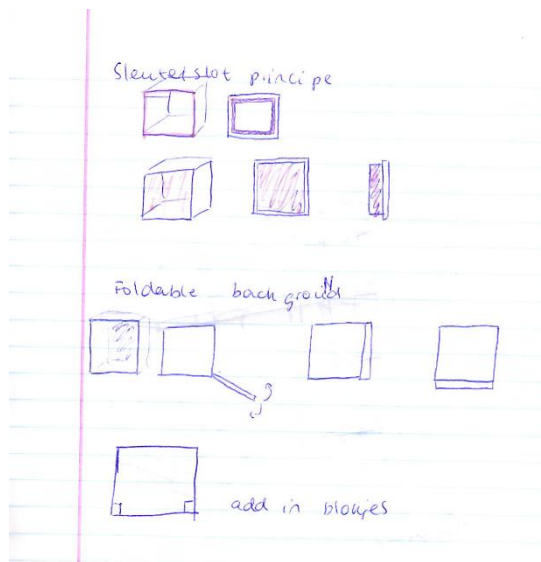 Sleutelslot principe
Foldable background
add in blokjes